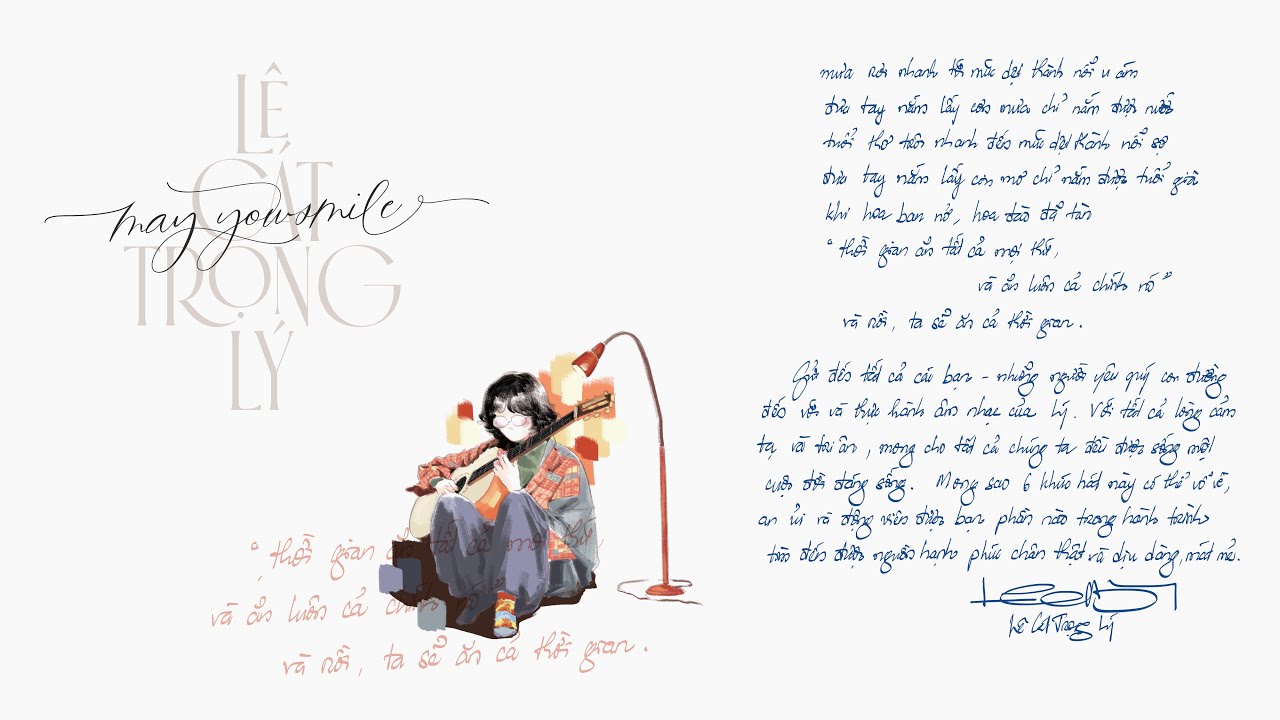 LÊ
CÁT
TRỌNG
LÝ
may you smile
mưa rơi nhanh tới mức dệt thành nỗi u ám
đưa tay nắm lấy cơn mưa chỉ nắm được nước
tuổi thơ trôi nhanh đến mức dệt thành nỗi sợ
đưa tay nắm lấy cơn mơ chỉ nắm được tuổi già
khi hoa ban nở, hoa đào đã tàn
"thời gian ăn tất cả mọi thứ,
và ăn luôn cả chính nó"
và rồi, ta sẽ ăn cả thời gian.
Gửi đến tất cả các bạn - những người yêu quý con đường
đến với và thực hành âm nhạc của Lý. Với tất cả lòng cảm
tạ và tri ân, mong cho tất cả chúng ta đều được sống một
cuộc đời đáng sống. Mong sao 6 khúc hát này có thể vỗ về,
an ủi và động viên được bạn phần nào trong hành trình
tìm đến được nguồn hạnh phúc chân thật và dịu dàng, mát mẻ.
Lê Cát Trọng Lý
"thời gian ăn tất cả mọi thứ,
và ăn luôn cả chính nó"
và rồi, ta sẽ ăn cả thời gian.